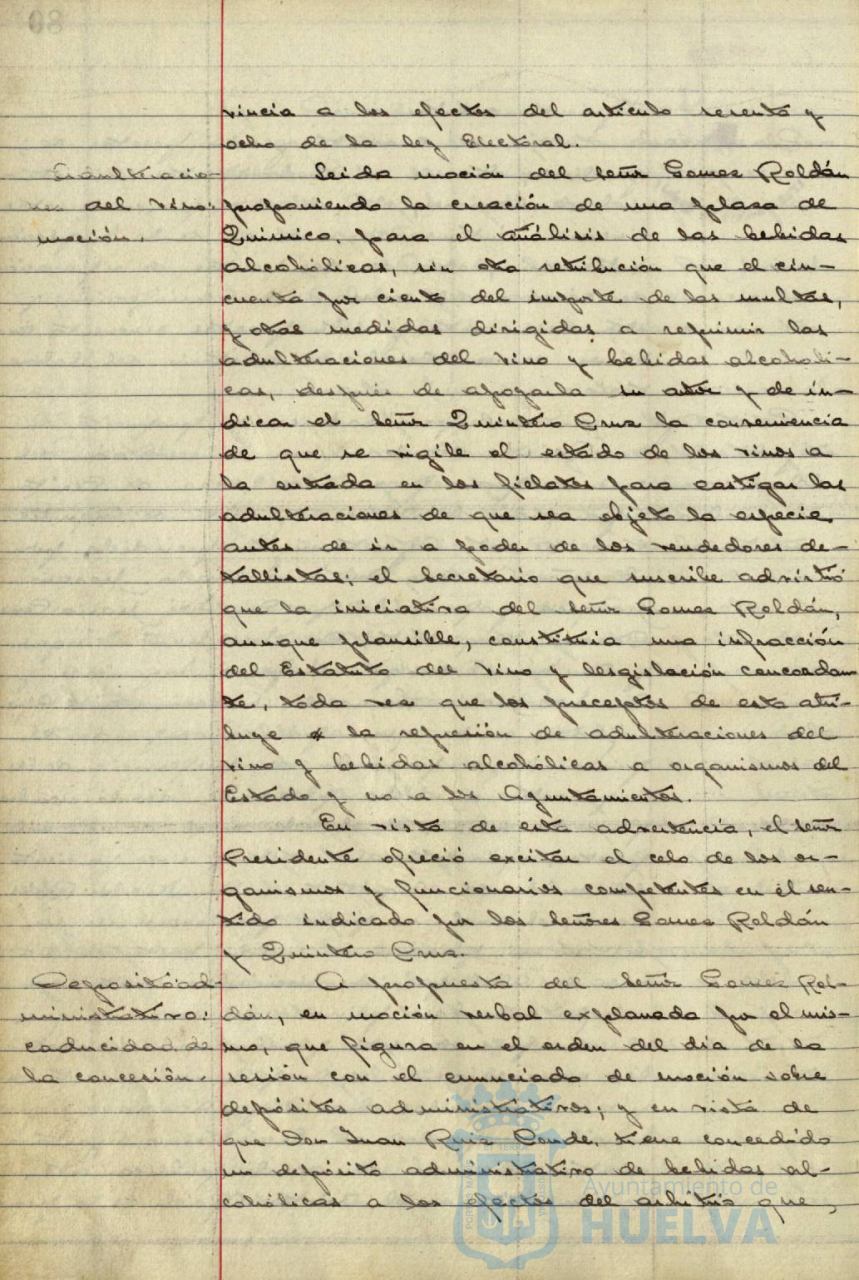 vincia a los efectos del artículo sesenta y
ocho de la ley Electoral.
Adulteracio-
nes del vino:
moción.
Leida moción del Señor Gomez Roldán
proponiendo la creación de una plaza de
Quimico, para el análisis de las bebidas
alcohólicas, sin otra retribución que el cin-
cuenta por ciento del importe de las multas,
y otras medidas dirigidas a reprimir las
adulteraciones del vino y bebidas alcoholi-
cas, después de apoyarla su autor y de in-
dicar el Señor Quintero Cruz la conveniencia
de que se vigile el estado de los vinos a
la entrada en los fielatos para castigar las
adulteraciones de que sea objeto la especie,
antes de ir a poder de los vendedores de-
tallistas; el Secretario que suscribe advirtió
que la iniciativa del Señor Gomez Roldán,
aunque plausible, constituia una infracción
del Estatuto del Vino y lesgislación concordan-
te, toda vez que los preceptos de esta atri-
buye la represión de adulteraciones del
vino y bebidas alcohólicas a organismos del
Estado y no a los Ayuntamientos.
En vista de esta advertencia, el Señor
Presidente ofreció excitar el celo de los or-
ganismos y funcionarios competentes en el sen-
tido indicado por los Señores Gomez Roldán
y Quintero Cruz.
Deposito ad-
ministrativo:
caducidad de
la concesión.
A propuesta del Señor Gomez Rol-
dán, en moción verbal explanada por el mis-
mo, que figura en el orden del dia de la
sesión con el enunciado de moción sobre
depósitos administrativos; y en vista de
que Don Juan Ruiz Conde, tiene concedido
un depósito administrativo de bebidas al-
cohólicas a los efectos del arbitrio que,
Ayuntamiento de
HUELVA